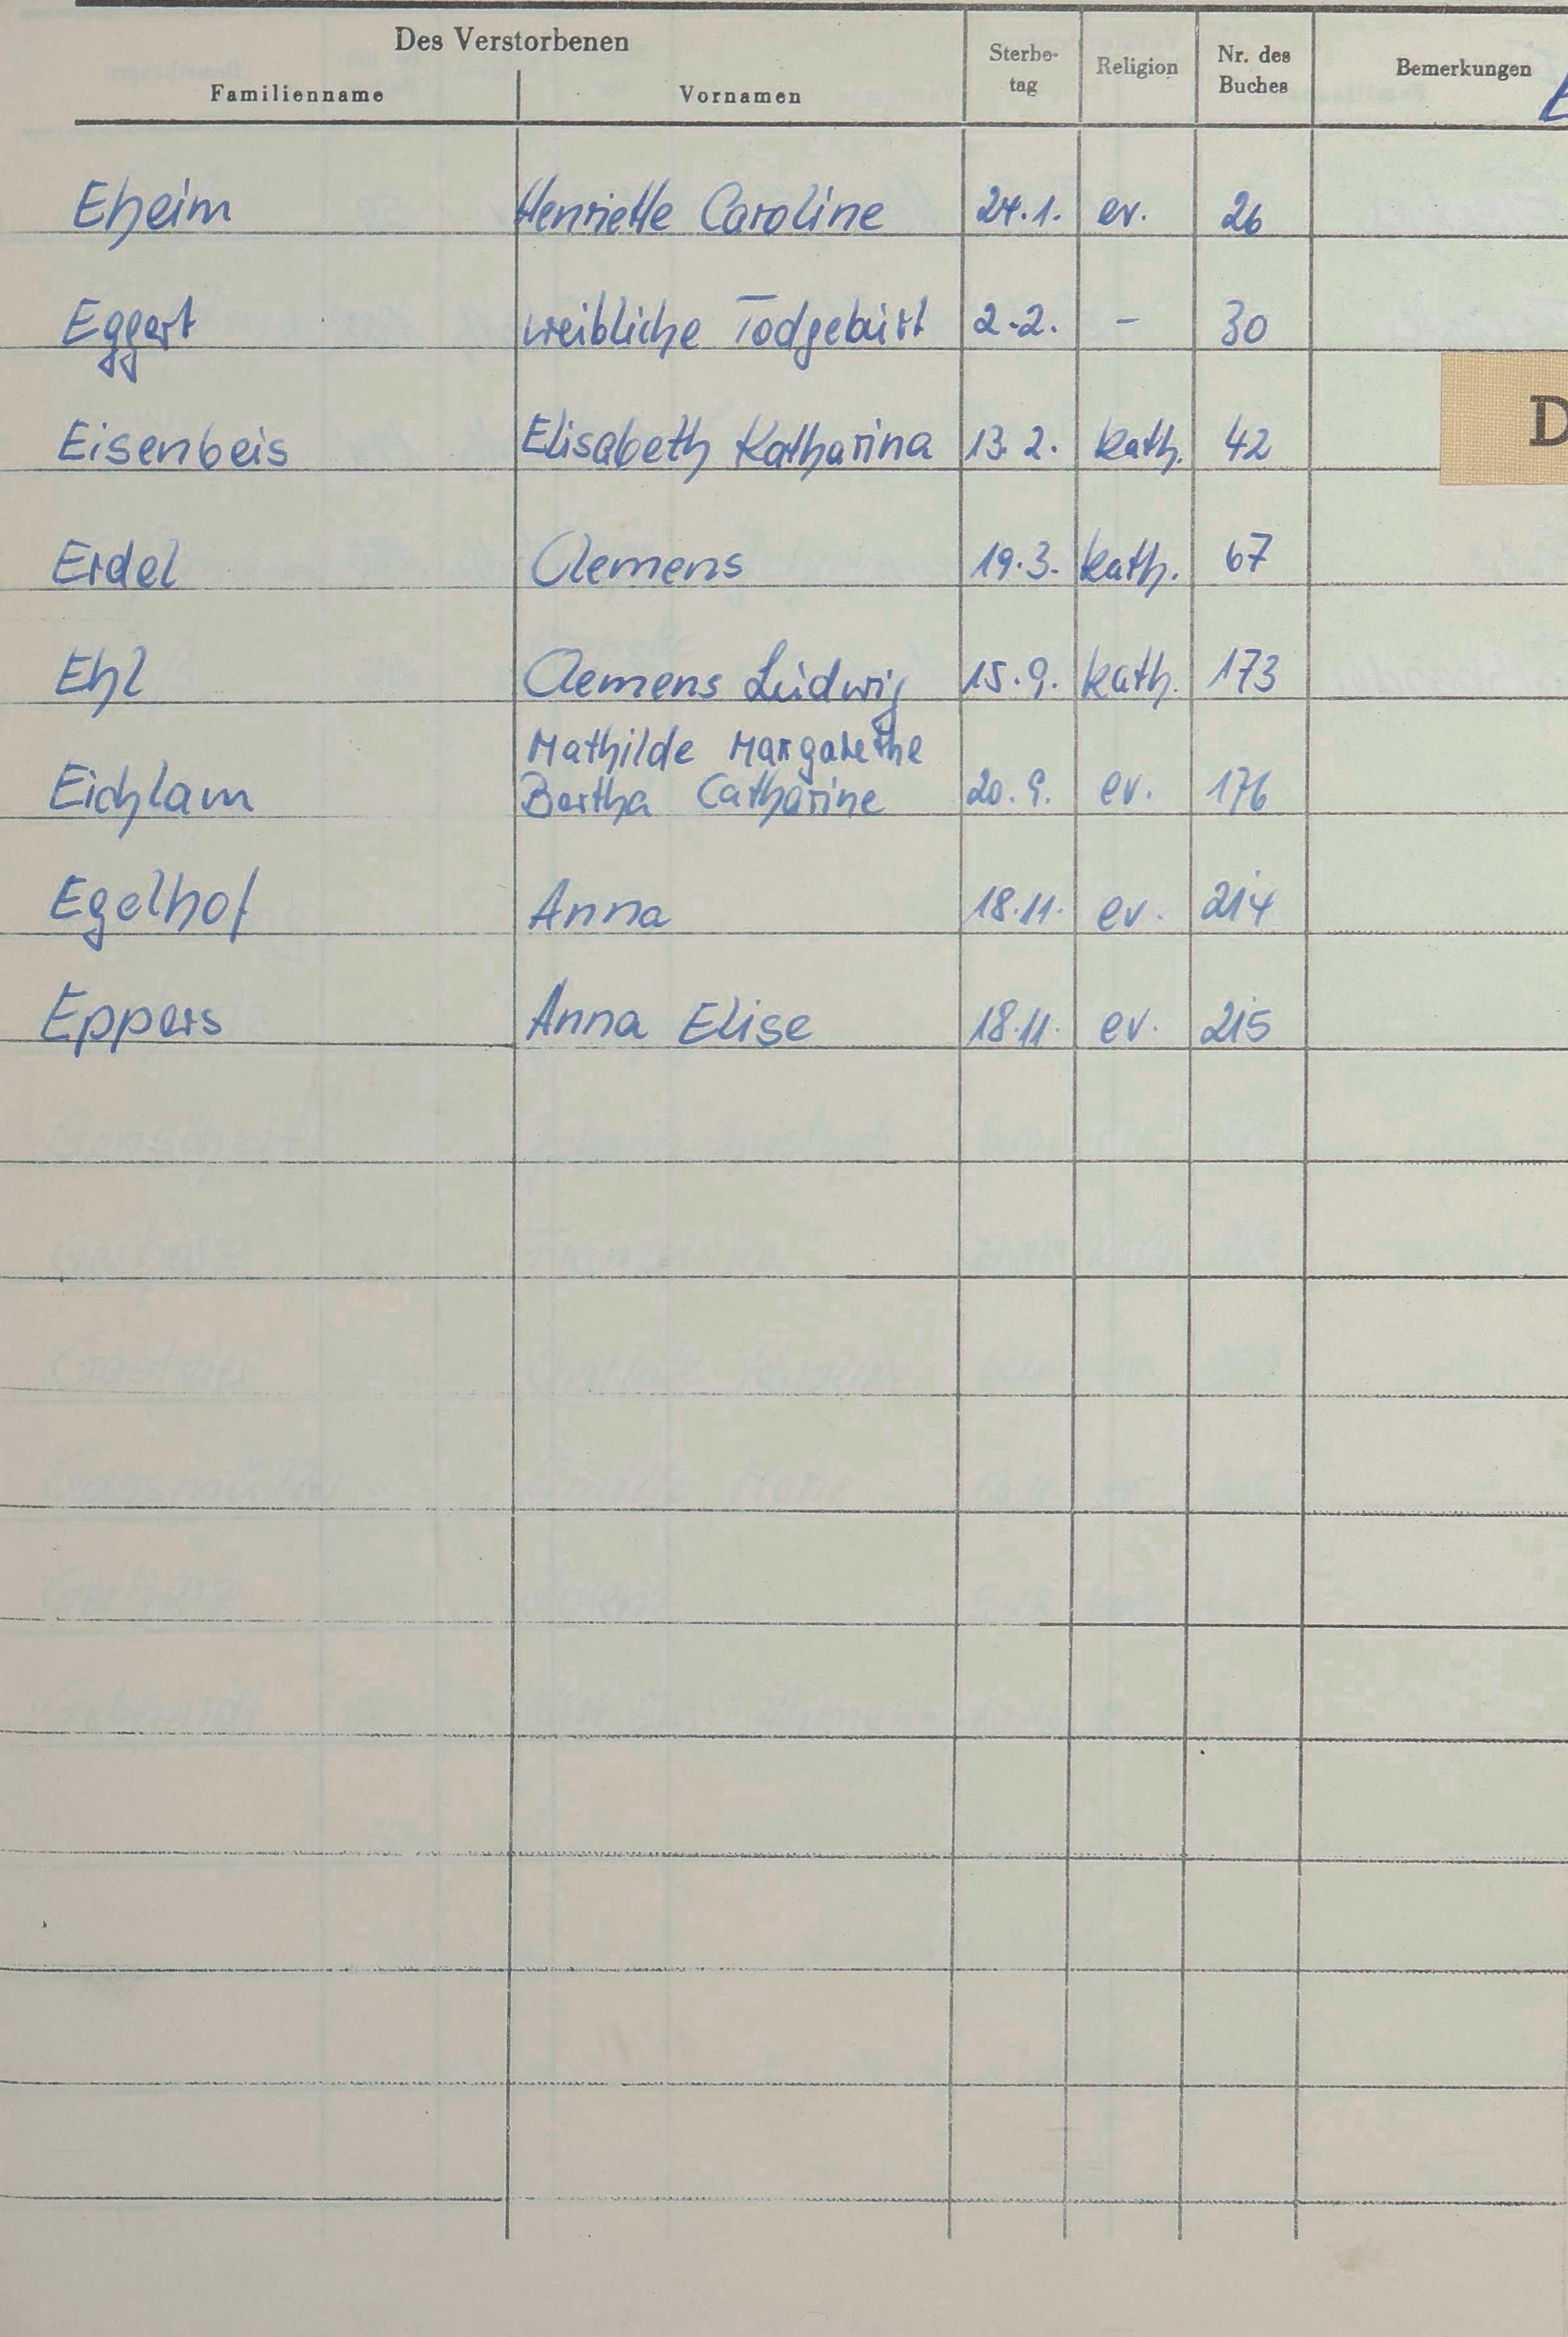 Des Verstorbenen
Familienname Vornamen Sterbe-tag Religion Nr. des Buches Bemerkungen
E
Eheim Henriette Caroline 24.1. ev. 26
Eggert weibliche Todgeburt 2.2. – 30
D
Eisenbeis Elisabeth Katharina 13.2. kath. 42
Erdel Clemens 19.3. kath. 67
Ehl Clemens Ludwig 15.9. kath. 173
Mathilde Margarethe
Eichlam Bertha Catharine 20.9. ev. 176
Egelhof Anna 18.11. ev. 214
Eppers Anna Elise 18.11. ev. 215